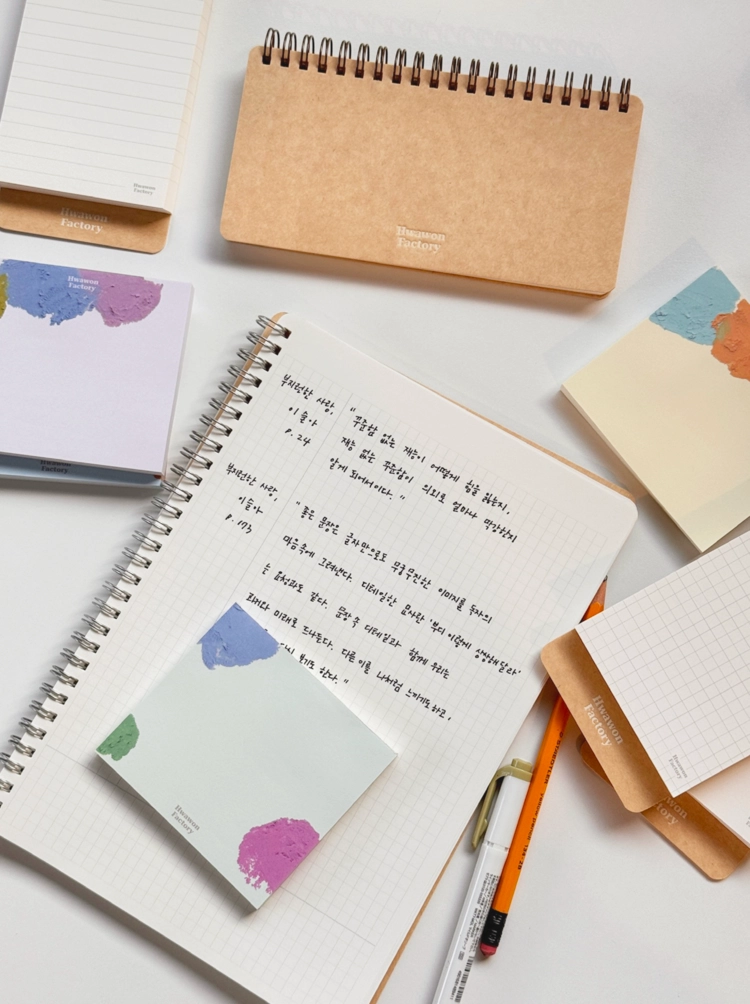 Hwawon
Factory
Hwawon
Factory
Hwawon
Factory
Hwawon
Factory
부지런한 사랑,
이슬아
p. 24
"꾸준함 없는 재능이 어떻게 힘을 잃는지,
재능 없는 꾸준함이 의외로 얼마나 막강한지
알게 되어서이다."
부지런한 사랑,
이슬아
p. 173
"좋은 문장은 글자만으로도 무궁무진한 이미지를 독자의
마음속에 그려낸다. 디테일한 묘사란 '부디 이렇게 상상해달라'
는 요청과도 같다. 문장 속 디테일과 함께 우리는
과거와 미래로 드나든다. 다른 이를 나처럼 느끼기도 하고,
보기도 한다."
Hwawon
Factory
Hwawon
Factory
Hwawon
Factory